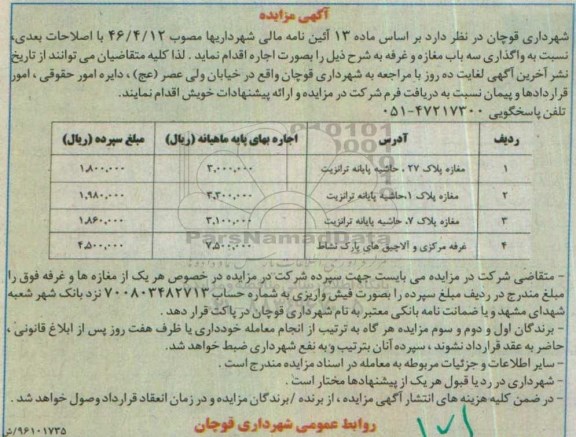 آگهی مزایده
شهرداری قوچان در نظر دارد بر اساس ماده ۱۳ آئین نامه مالی شهرداریها مصوب ۴۶/۴/۱۲ با اصلاحات بعدی،
نسبت به واگذاری سه باب مغازه و غرفه به شرح ذیل را بصورت اجاره اقدام نماید . لذا کلیه متقاضیان می توانند از تاریخ
نشر آخرین آگهی لغایت ده روز با مراجعه به شهرداری قوچان واقع در خیابان ولی عصر (عج) ، دایره امور حقوقی ، امور
قراردادها و پیمان نسبت به دریافت فرم شرکت در مزایده و ارائه پیشنهادات خویش اقدام نمایند.
تلفن پاسخگویی ۴۷۲۱۷۳۰۰-۰۵۱
ردیف آدرس اجاره بهای پایه ماهیانه (ریال) مبلغ سپرده (ریال)
۱ مغازه پلاک ۲۷ ، حاشیه پایانه ترانزیت ۳،۰۰۰،۰۰۰ ۱،۸۰۰،۰۰۰
۲ مغازه پلاک ۱،حاشیه پایانه ترانزیت ۳،۳۰۰،۰۰۰ ۱،۹۸۰،۰۰۰
۳ مغازه پلاک ۷، حاشیه پایانه ترانزیت ۳،۱۰۰،۰۰۰ ۱،۸۶۰،۰۰۰
۴ غرفه مرکزی و آلاچیق های پارک نشاط ۷،۵۰۰،۰۰۰ ۴،۵۰۰،۰۰۰
ParsNamadData
- متقاضی شرکت در مزایده می بایست جهت سپرده شرکت در مزایده در خصوص هر یک از مغازه ها و غرفه فوق را
مبلغ مندرج در ردیف مبلغ سپرده را بصورت فیش واریزی به شماره حساب ۷۰۰۸۰۳۴۸۲۷۱۳ نزد بانک شهر شعبه
شهدای مشهد و یا ضمانت نامه بانکی معتبر به نام شهرداری قوچان در پاکت قرار دهد .
- برندگان اول و دوم و سوم مزایده هر گاه به ترتیب از انجام معامله خودداری یا ظرف هفت روز پس از ابلاغ قانونی ،
حاضر به عقد قرارداد نشوند ، سپرده آنان بترتیب و به نفع شهرداری ضبط خواهد شد.
- سایر اطلاعات و جزئیات مربوطه به معامله در اسناد مزایده مندرج است .
- شهرداری در رد یا قبول هر یک از پیشنهادها مختار است .
- در ضمن کلیه هزینه های انتشار آگهی مزایده ، از برنده /برندگان مزایده و در زمان انعقاد قرارداد وصول خواهد شد .
روابط عمومی شهرداری قوچان
۹۶۱۰۱۷۳۵/ش